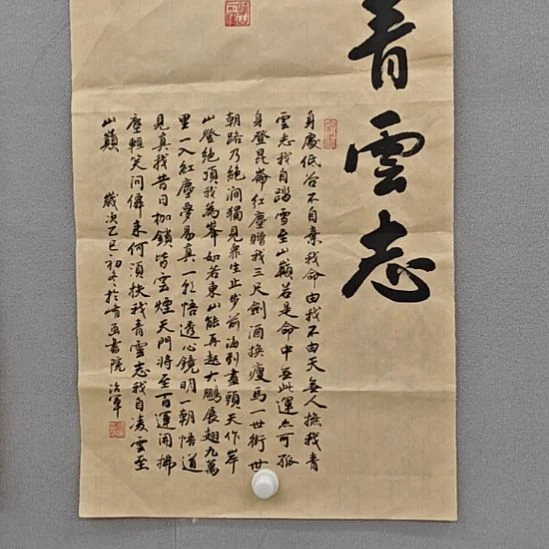 青雲志
身處低谷不自棄我命由我不由天無人撫我青
雲志我自踏雪至山巔若是命中無此運亦可孤
身登昆崙紅塵贈我三尺劍酒換瘦馬一世街世
朝路乃絕澗獨見眾生止步前海到盡頭天作岸
山登絕頂我為峯如若東山能再起大鵬展翅九萬
里一入紅塵夢易真一朝悟透心鏡明一朝悟道
見真我昔日枷鎖皆雲煙天門將至百運開拂
塵輕笑問來何須扶我青雲志我自凌雲至
山巔 歲次乙巳初冬於書院